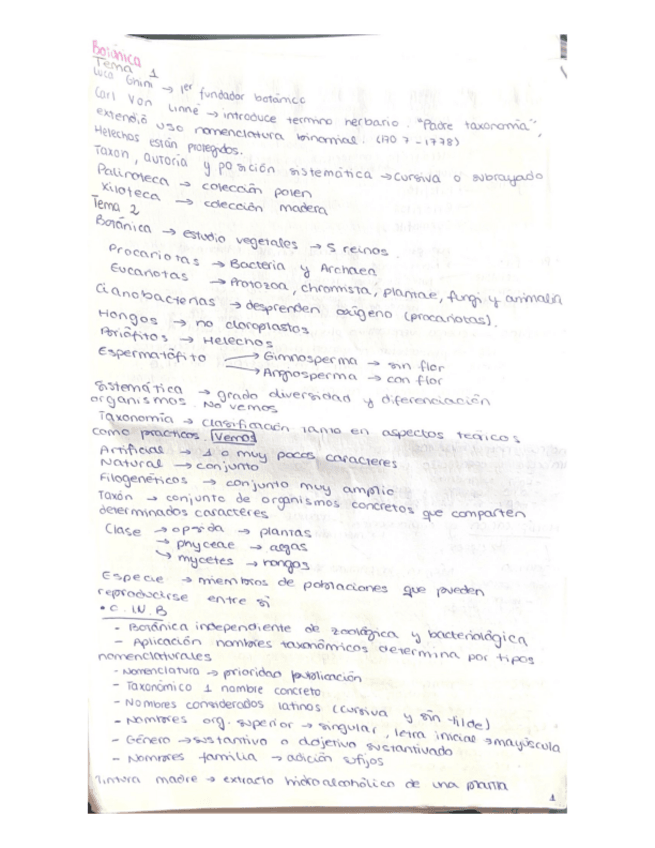 Botánica
Tema 1
Luca Ghini → 1er fundador botánico
Carl Von Linné → introduce termino herbario. "Padre taxonomía",
extendió uso nomenclatura binomial. (1707-1778)
Helechos están protegidos.
Taxon, autoría y posición sistemática → cursiva o subrayado
Palinoteca → colección polen
Xiloteca → colección madera
Tema 2
Botánica → estudio vegetales → 5 reinos.
Procariotas → Bacteria y Archaea
Eucariotas → Protozoa, chromista, plantae, fungi y animalia
Cianobacterias → desprenden oxígeno (procariotas).
Hongos → no cloroplastos
→ Helechos
Espermatófito → Gimnosperma → sin flor
→ Angiosperma → con flor
Sistemática → grado diversidad y diferenciación
organismos. No vemos
Taxonomía → clasificación tanto en aspectos teóricos
como prácticos. Vemos
Artificial → 1 o muy pocos caracteres
Natural → conjunto
Filogenéticos → conjunto muy amplio
Taxón → conjunto de organismos concretos que comparten
determinados caracteres
Clase → opsida → plantas
→ phyceae → algas
→ mycetes → hongos
Especie → miembros de poblaciones que pueden
reproducirse entre si
• C.N.B
- Botánica independiente de zoológica y bacteriológica
- Aplicación nombres taxonómicos determina por tipos
nomenclaturales
- Nomenclatura → prioridad publicación
- Taxonómico 1 nombre concreto
- Nombres considerados latinos (cursiva y sin tilde)
- Nombres org. superior → singular, letra inicial → mayúscula
- Género → sustantivo o adjetivo sustantivado
- Nombres familia → adición sufijos
Tintura madre → extracto hidroalcohólico de una planta
1